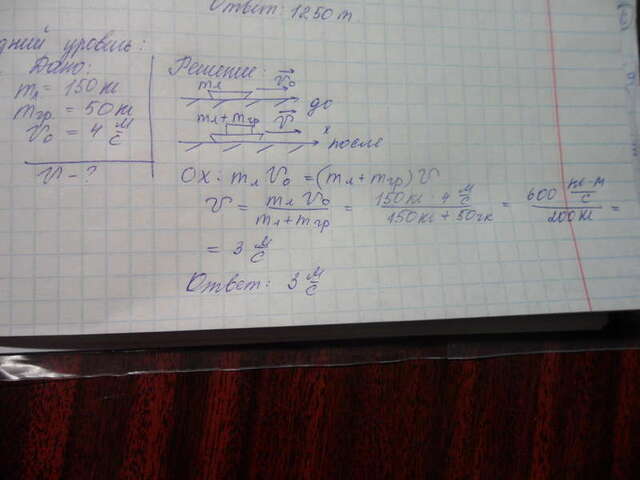 Ответ: 1250 т
дний уровень:
Дано:
mл = 150 кг
mгр = 50 кг
v₀ = 4 м/с
v - ?
Решение:
mл v₀
до
mл+mгр v x
после
OX: mл v₀ = (mл + mгр) v
v = mл v₀ / mл + mгр = 150 кг · 4 м/с / 150 кг + 50 кг = 600 кг·м/с / 200 кг =
= 3 м/с
Ответ: 3 м/с